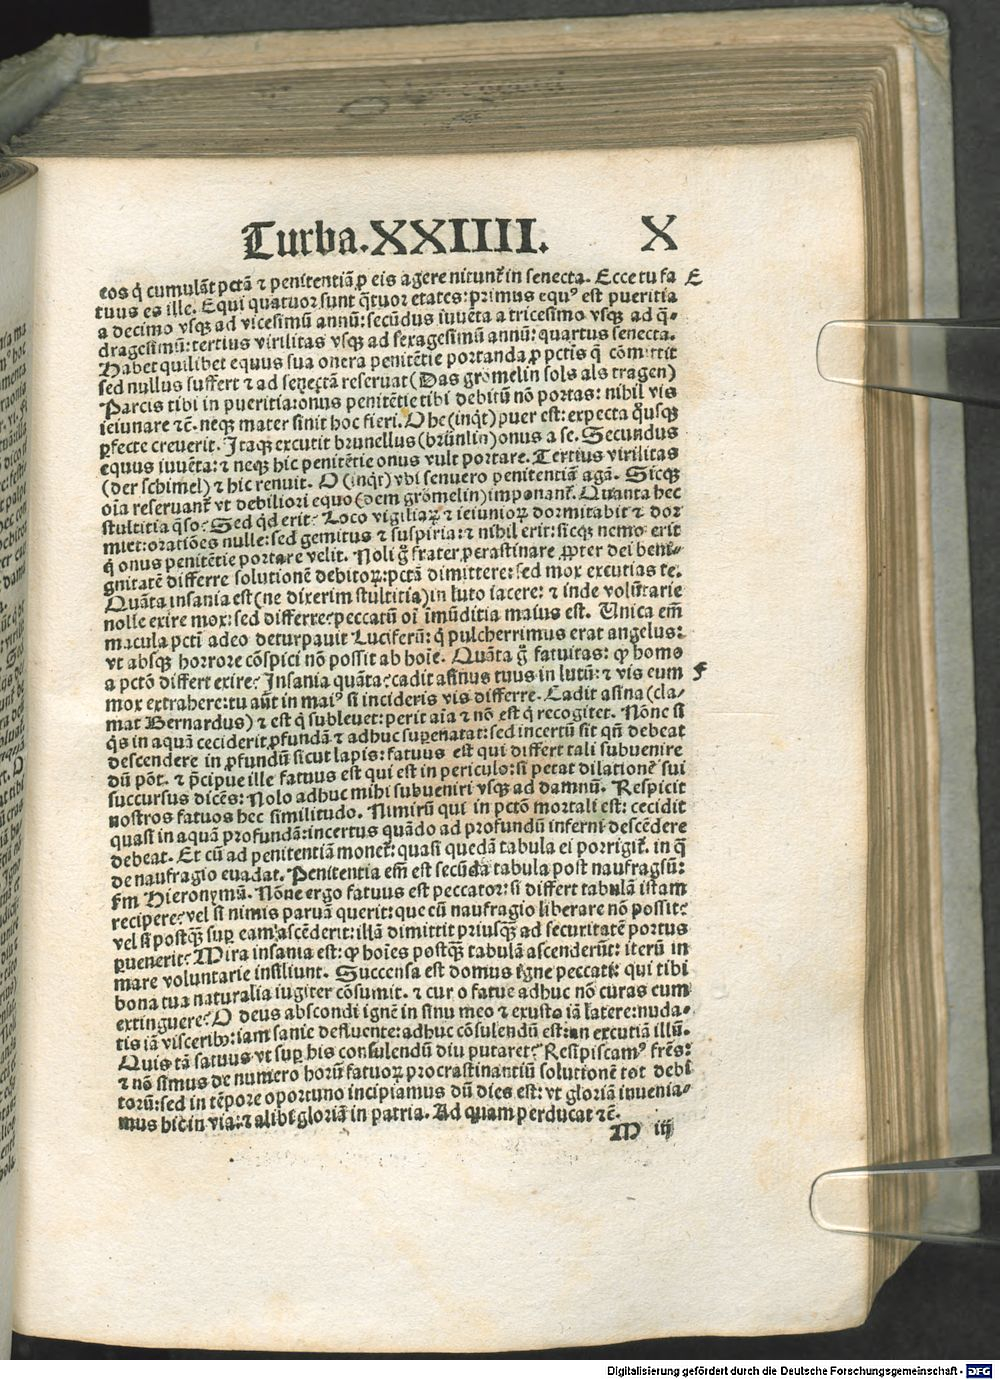 Turba.XXIIII. X
eos q̇ cumulāt pctā ⁊ penitentiā ꝓ eis agere nitunt̃ in senecta. Ecce tu fa E
tuus es ille. Equi quatuor sunt q̃tuor etates: primus equꝰ est pueritia
a decimo vsqꝫ ad vicesimū annū: secūdus iuuēta a tricesimo vsqꝫ ad q̃-
dragesimū: tertius virilitas vsqꝫ ad sexagesimū annū: quartus senecta.
Habet quilibet equus sua onera penitētie portanda ꝓ pctis q̃ cōmittit
sed nullus suffert ⁊ ad senectā reseruat (Das gromelin sols als tragen)
Parcis tibi in pueritia: onus penitētie tibi debitū nō portas: nihil vis
ieiunare ⁊c̄. neqꝫ mater sinit hoc fieri. Ohe (inqt̃) puer est: expecta q̃usqꝫ
ꝑfecte creuerit. Itaqꝫ excutit brunellus (brünlin) onus a se. Secundus
equus iuuēta: ⁊ neqꝫ hic penitētie onus vult portare. Tertius virilitas
(der schimel) ⁊ hic renuit. O (inqt̃) vbi senuero penitentiā agā. Sicqꝫ
oīa reseruant̃ vt debiliori equo (dem gromelin) imponant̃. Quanta hec
stultitia q̃so? Sed qd̃ erit? Loco vigiliaꝝ ⁊ ieiunioꝝ dormitabit ⁊ dor
miet: oratiōes nulle: sed gemitus ⁊ suspiria: ⁊ nihil erit: sicqꝫ nemo erit
q̇ onus penitētie portare velit. Noli g̃ frater perastinare ꝓpter dei beni-
gnitatē differre solutionē debitoꝝ: pctā dimittere: sed mox excutias te.
Quāta insania est (ne dixerim stultitia) in luto iacere: ⁊ inde volūtarie
nolle exire mox: sed differre? peccatū oī īmūditia maius est. Unica em̄
macula pctī adeo deturpauit Luciferū: q̇ pulcherrimus erat angelus:
vt absqꝫ horrore cōspici nō possit ab hoīe. Quāta g̃ fatuitas: ꝙ homo
a pctō differt exire? Insania quāta? cadit asinus tuus in lutū: ⁊ vis eum F
mox extrahere: tu aūt in maiꝰ si incideris vis differre. Cadit asina (cla-
mat Bernardus) ⁊ est q̇ subleuet: perit aīa ⁊ nō est q̇ recogitet. Nōne si
q̇s in aquā ceciderit ꝓfundā ⁊ adhuc suꝑenatat: sed incertū sit qñ debeat
descendere in ꝓfundū sicut lapis: fatuus est qui differt tali subuenire
dū pōt. ⁊ p̃cipue ille fatuus est qui est in periculo: si petat dilationē sui
succursus dicēs: Nolo adhuc mihi subueniri vsqꝫ ad damnū. Respicit
nostros fatuos hec similitudo. Nimirū qui in pctō mortali est: cecidit
quasi in aquā profundā: incertus quādo ad profundū inferni descēdere
debeat. Et cū ad penitentiā monet̃: quasi quedā tabula ei porrigit̃. in q̃
de naufragio euadat. Penitentia em̄ est secūda tabula post naufragiū:
fm̄ Hieronymū. Nōne ergo fatuus est peccator: si differt tabulā istam
recipere? vel si nimis paruā querit: que cū naufragio liberare nō possit?
vel si postqꝫ̃ suꝑ eam ascēderit: illā dimittit priusqꝫ̃ ad securitatē portus
ꝑuenerit? Mira insania est: ꝙ hoīes postqꝫ̃ tabulā ascenderūt: iterū in
mare voluntarie insiliunt. Succensa est domus igne peccati: qui tibi
bona tua naturalia iugiter cōsumit. ⁊ cur o fatue adhuc nō curas cum
extinguere? O deus abscondi ignē in sinu meo ⁊ exusto iā latere: nuda-
tis iā visceribꝰ: iam sanie defluente: adhuc cōsulendū est: an excutiā illū.
Quis tā fatuus vt suꝑ his consulendū diu putaret? Resipiscamꝰ frēs:
⁊ nō simus de numero horū fatuoꝝ procrastinantiū solutionē tot debi
torū: sed in tēpore oportuno incipiamus dū dies est: vt gloriā inuenia-
mus hic in via: ⁊ alibi gloriā in patria. Ad quam perducat ⁊c̄.
M iij
Digitalisierung gefördert durch die Deutsche Forschungsgemeinschaft - DFG